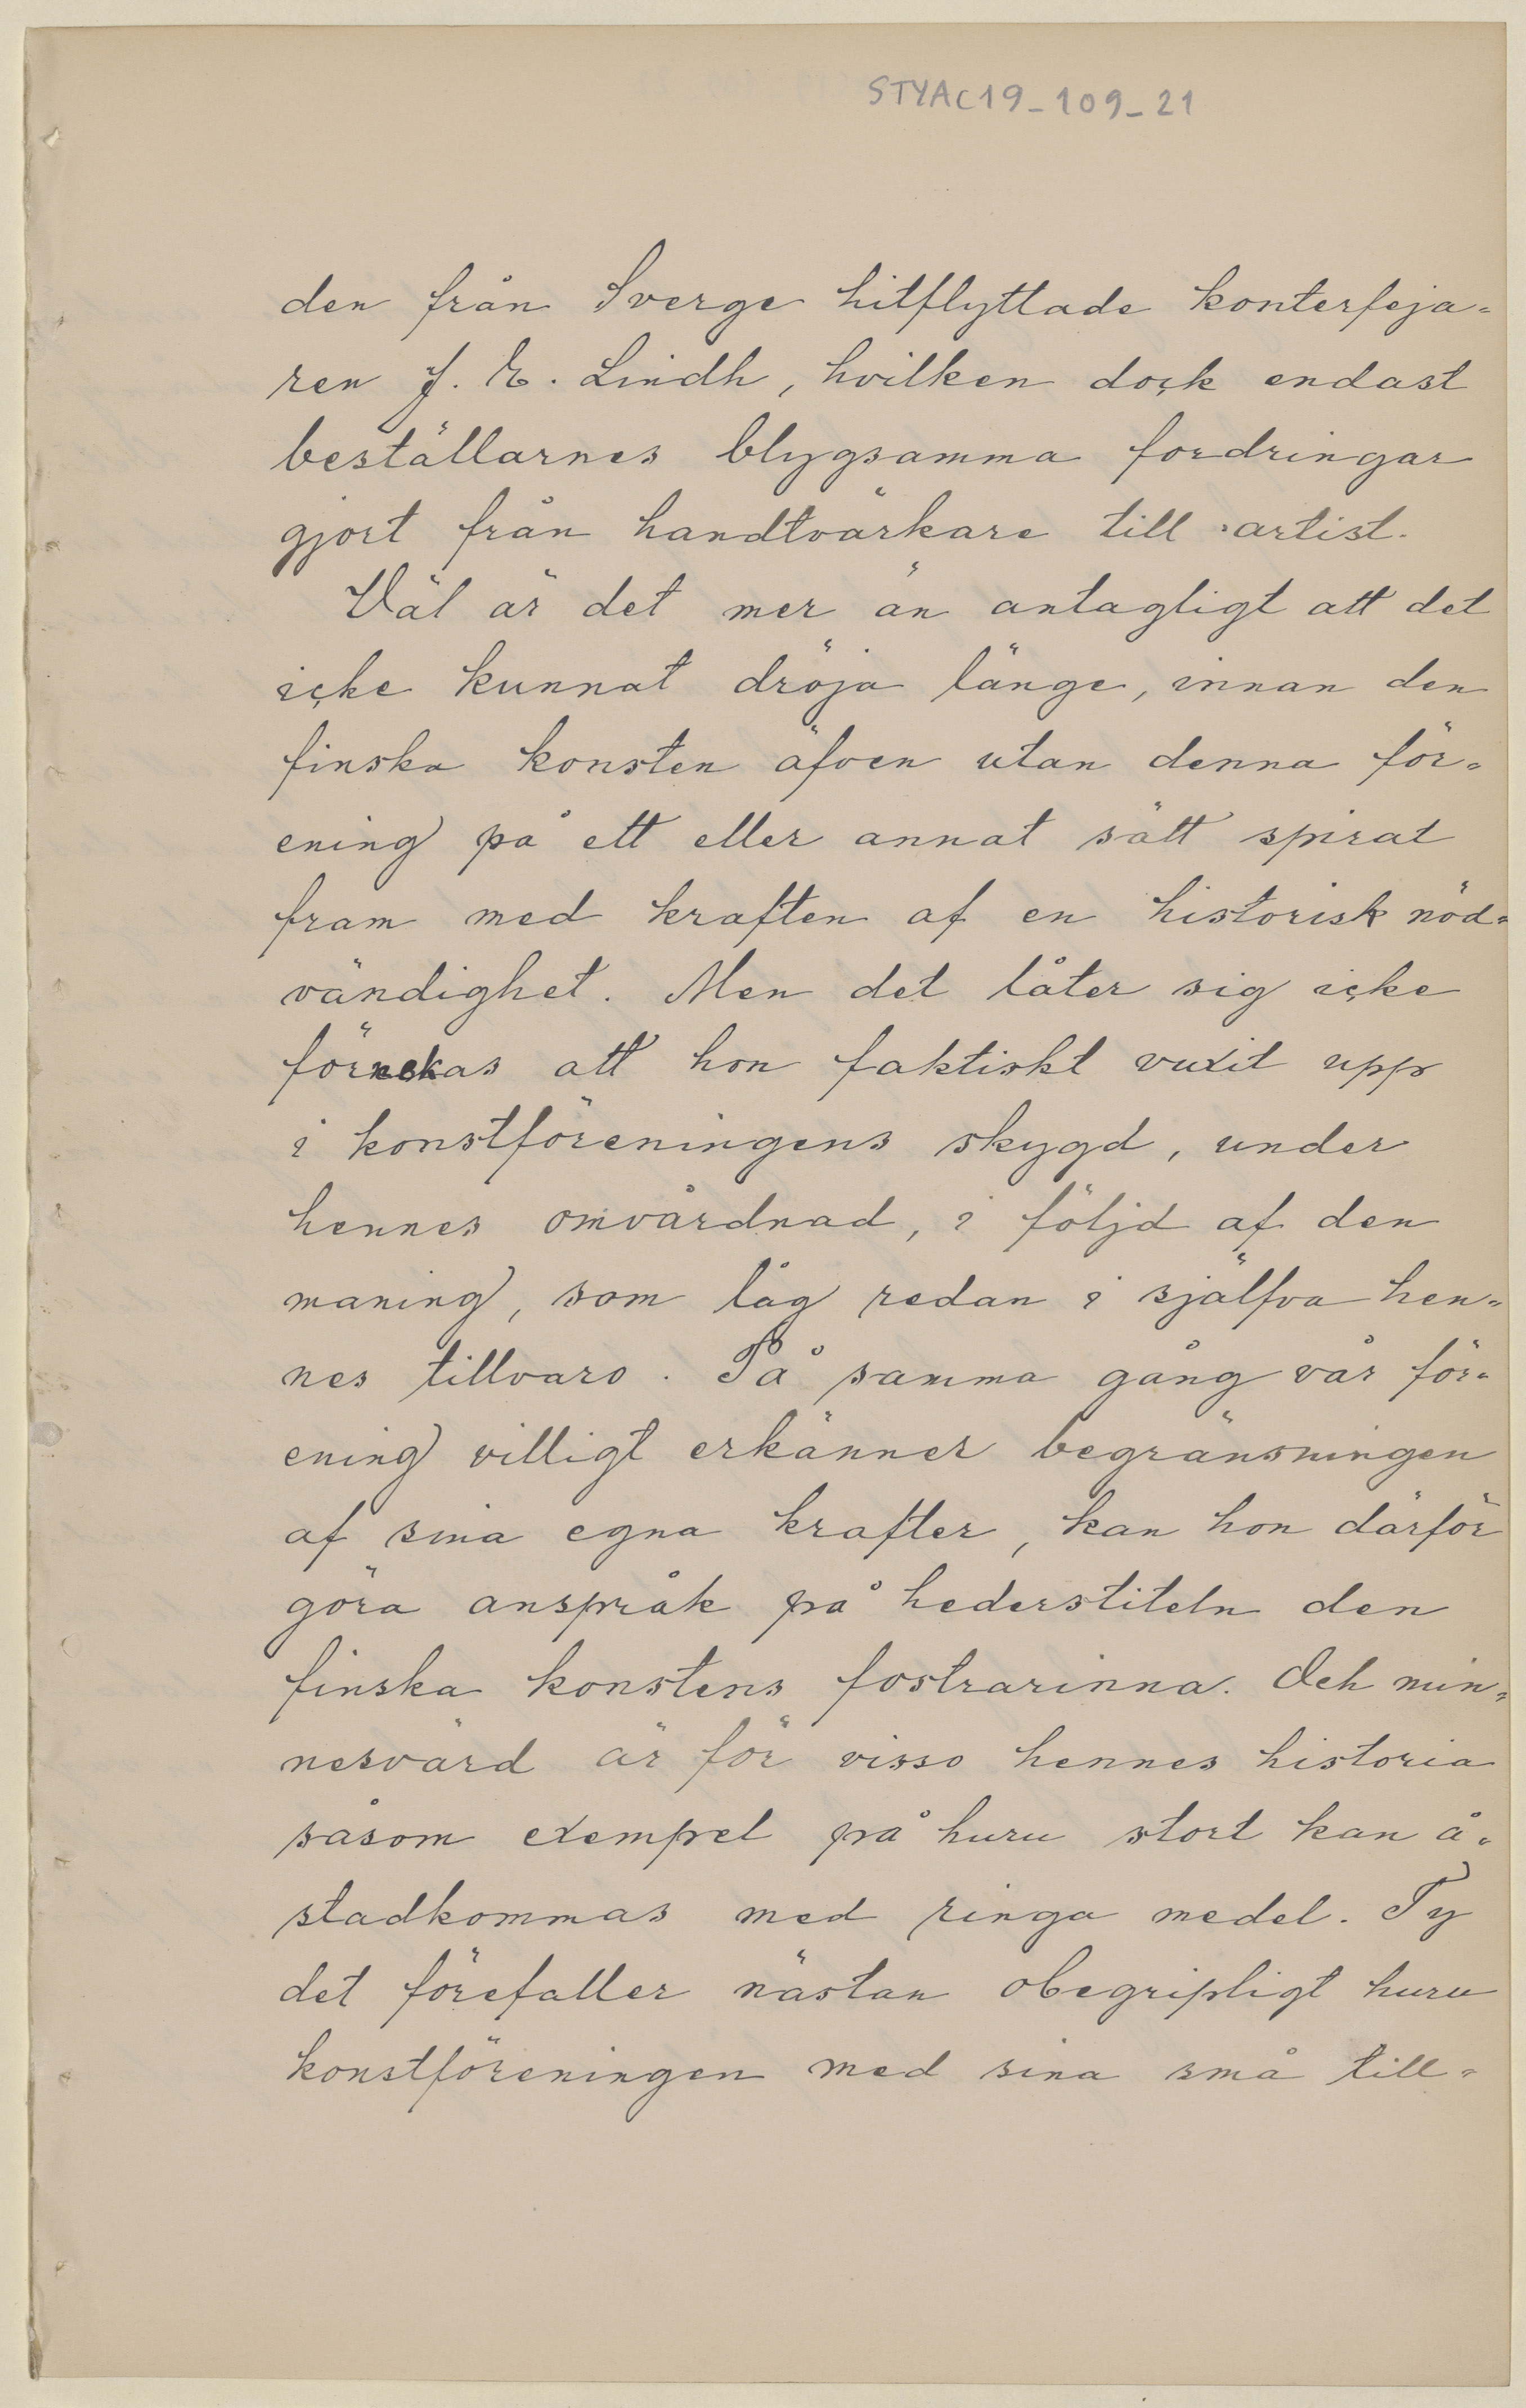 STYAC19_109_21
den från Sverge hitflyttade konterfeja-
ren J. E. Lindh, hvilken dock endast
beställarnes blygsamma fordringar
gjort från handtvärkare till artist.
Väl är det mer än antagligt att det
icke kunnat dröja länge, innan den
finska konsten äfven utan denna för-
ening på ett eller annat sätt spirat
fram med kraften af en historisk nöd-
vändighet. Men det låter sig icke
förnekas att hon faktiskt vuxit upp
i konstföreningens skygd, under
hennes omvårdnad, i följd af den
maning, som låg redan i själfva hen-
nes tillvaro. På samma gång vår för-
ening villigt erkänner begränsningen
af sina egna krafter, kan hon därför
göra anspråk på hederstiteln den
finska konstens fostrarinna. Och min-
nesvärd är för visso hennes historia
såsom exempel på huru stort kan å-
stadkommas med ringa medel. Ty
det förefaller nästan obegripligt huru
konstföreningen med sina små till-